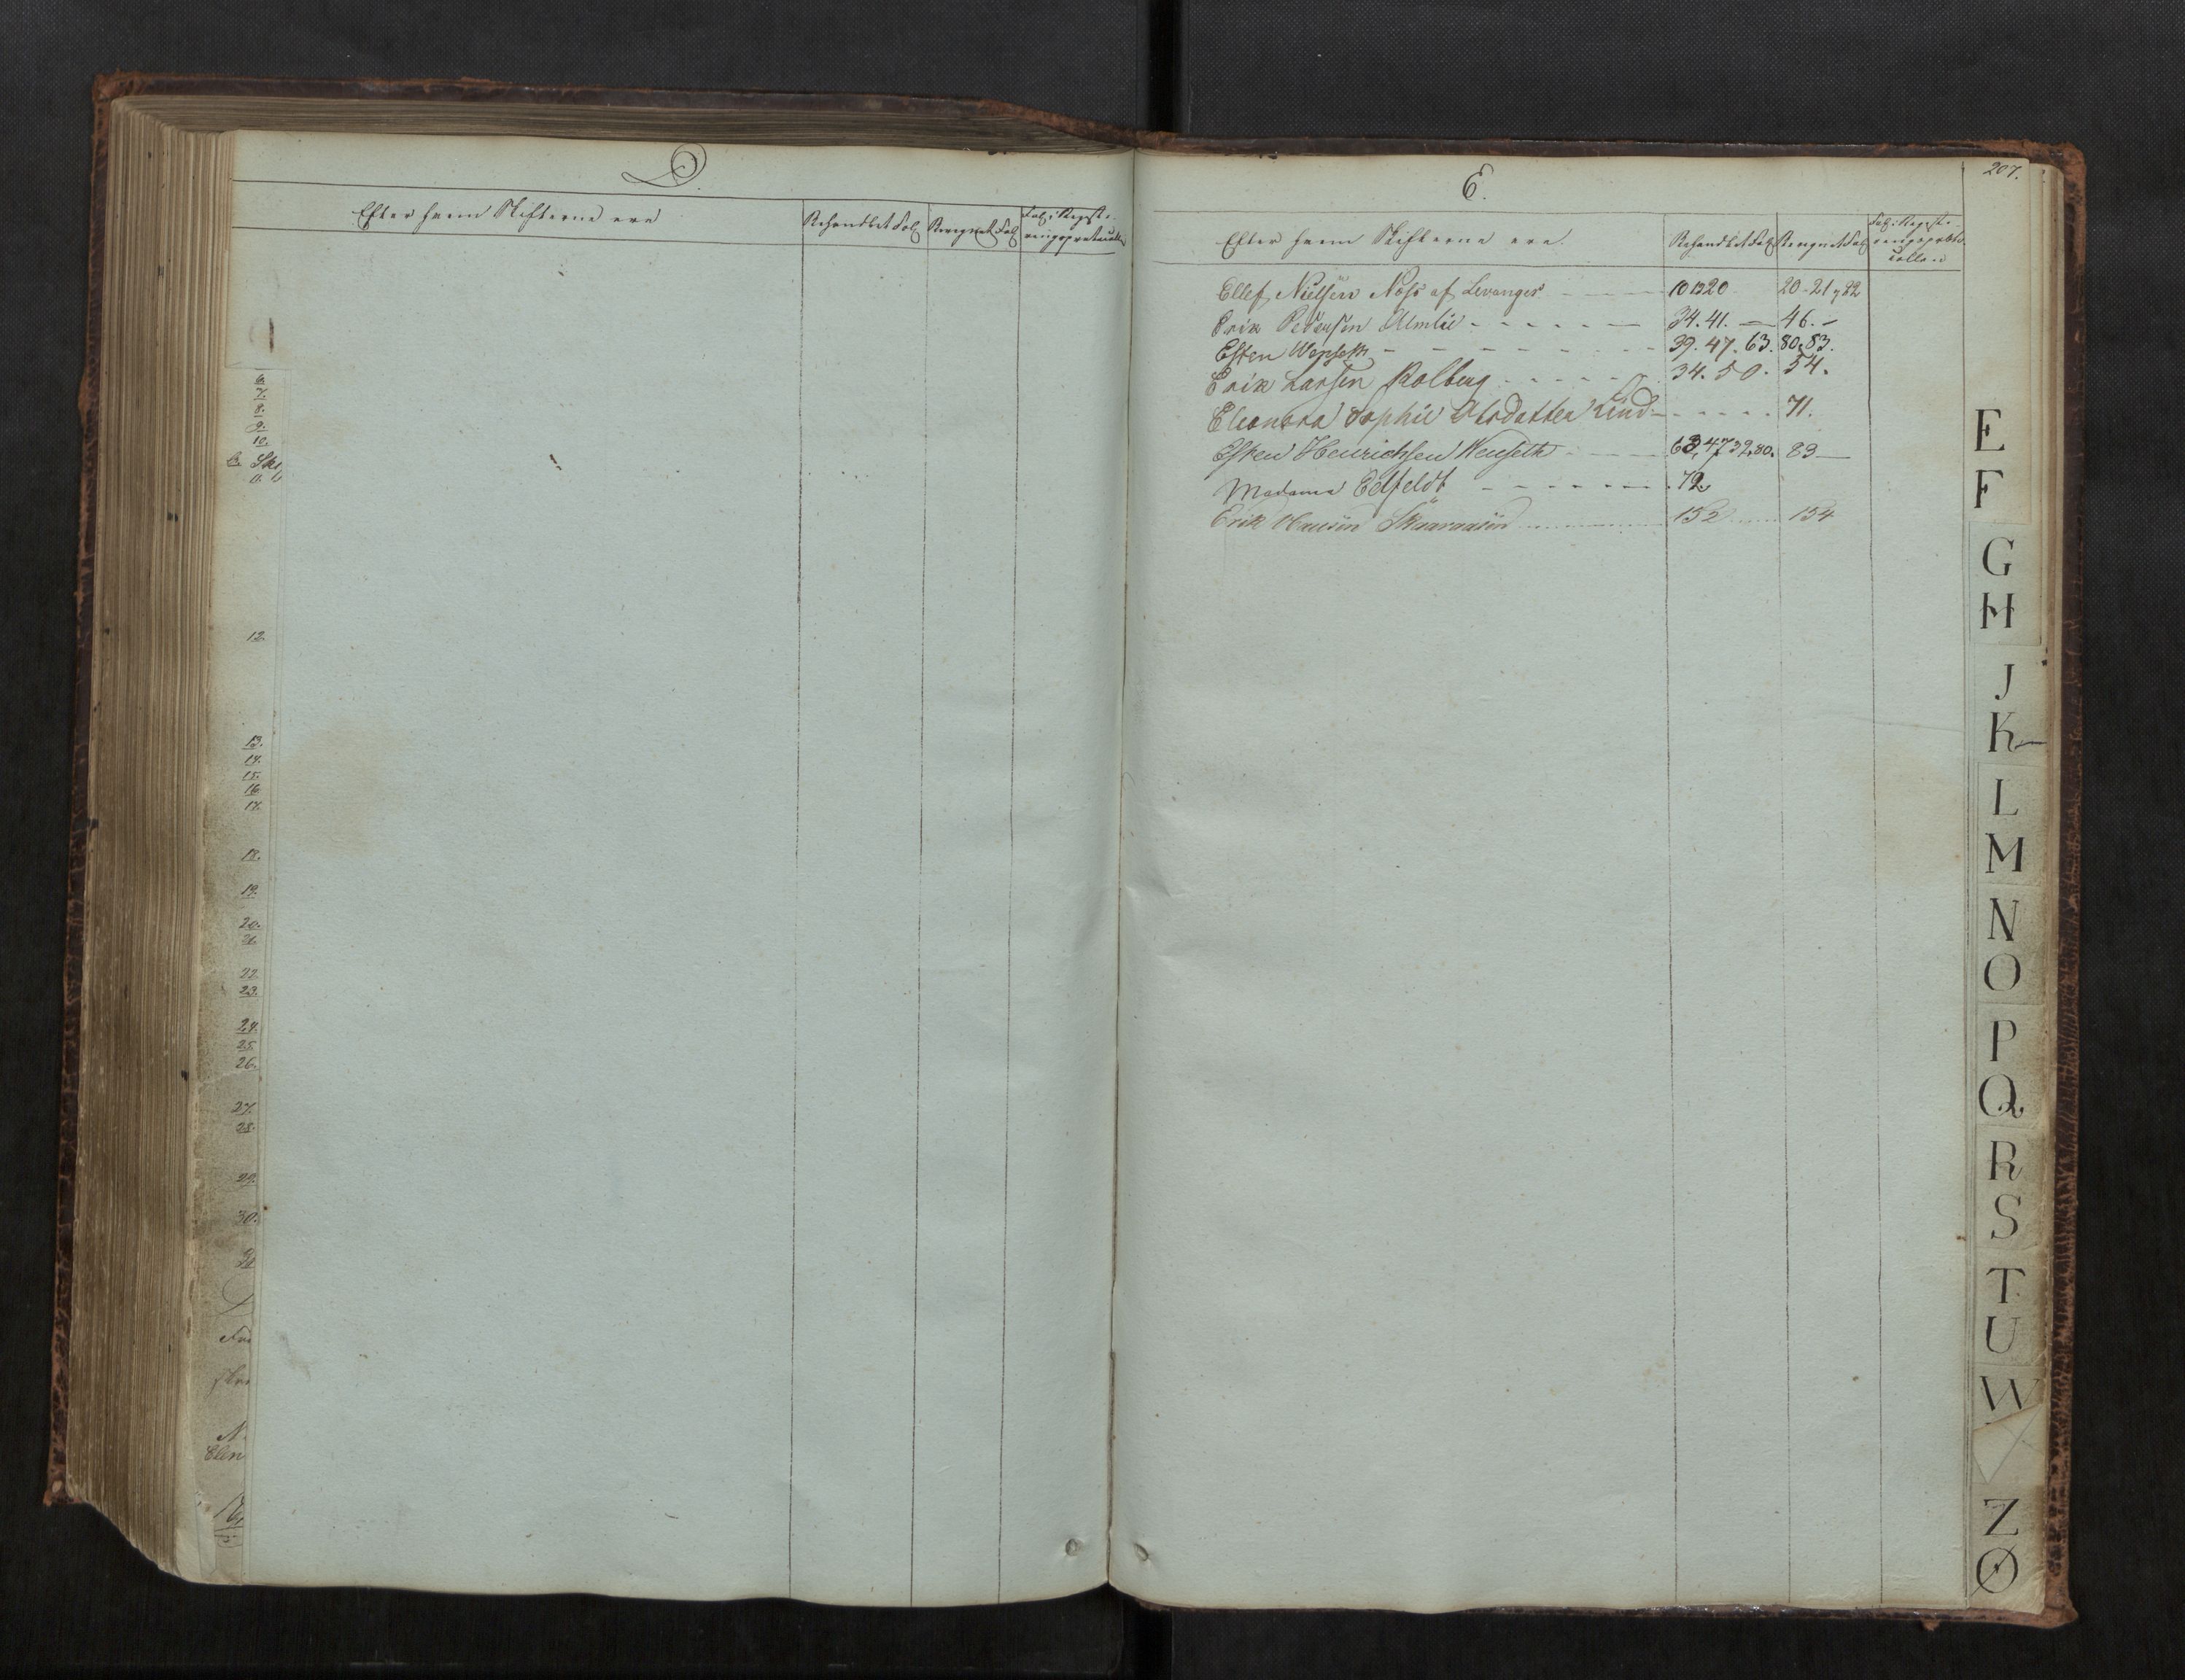 D.
Efter hvem Skifterne ere
Behandlet Fol
Beregnet Fol
Fol. i Registe-
ringsprotocollen
6.
7.
8.
9.
10.
12.
13.
14.
15.
16.
17.
18.
19.
20.
21.
22.
23.
24.
25.
26.
27.
28.
29.
30.
207.
E.
Efter hvem Skifterne ere.
Behandlet Fol
Beregnet Fol
Fol. i Registe-
ringsproto-
collen
Ellef Nielsen Noss af Levanger - - - 10 13 20 20-21 & 22
Erik Pedersen Almlie - - - - - - 34. 41. — 46. -
Esten Wenseth - - - - - - - 39. 47. 63. 80. 83.
Erik Larsen Kolberg - - - - - 34. 50. 54.
Eleonora Sophie Olsdatter Lind - - - - - 71.
Esten Henrichsen Wenseth - - - - 63, 47 39, 80. 83 —
Madame Edfeldt - - - - - - - 72.
Erik Hansen 152 154
E
F
G
H
J
K
L
M
N
O
P
Q
R
S
T
U
W
Z
Ø